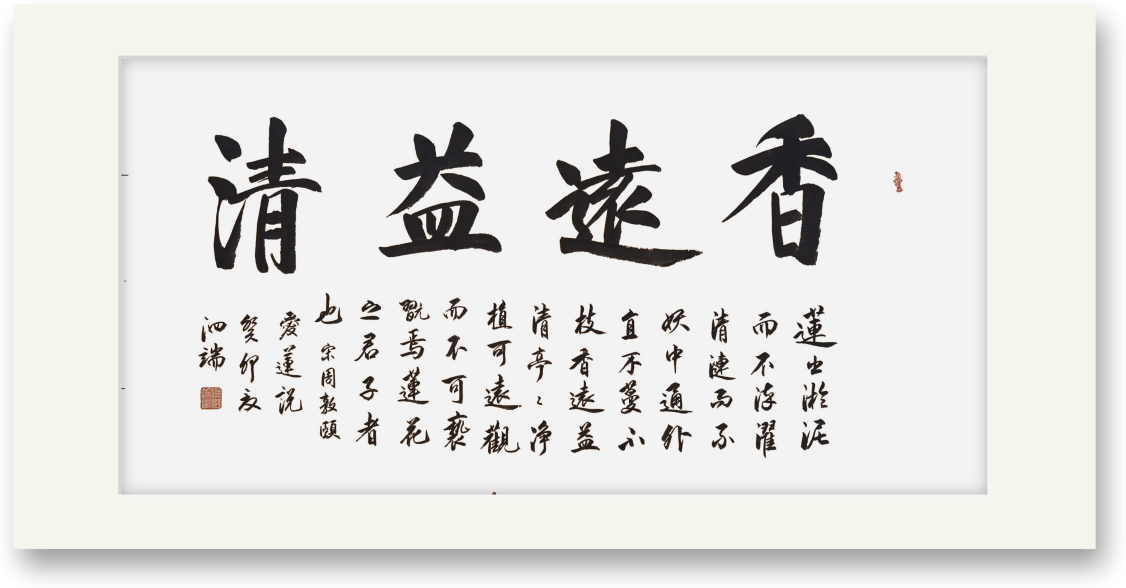 香遠益清
蓮出淤泥
而不濯
清漣而不
妖中通外
直不蔓不
枝香遠益
清亭〻淨
植可遠觀
而不可褻
翫焉蓮花
之君子者
也 宋周敦頤
愛蓮説
癸卯夏
泗端